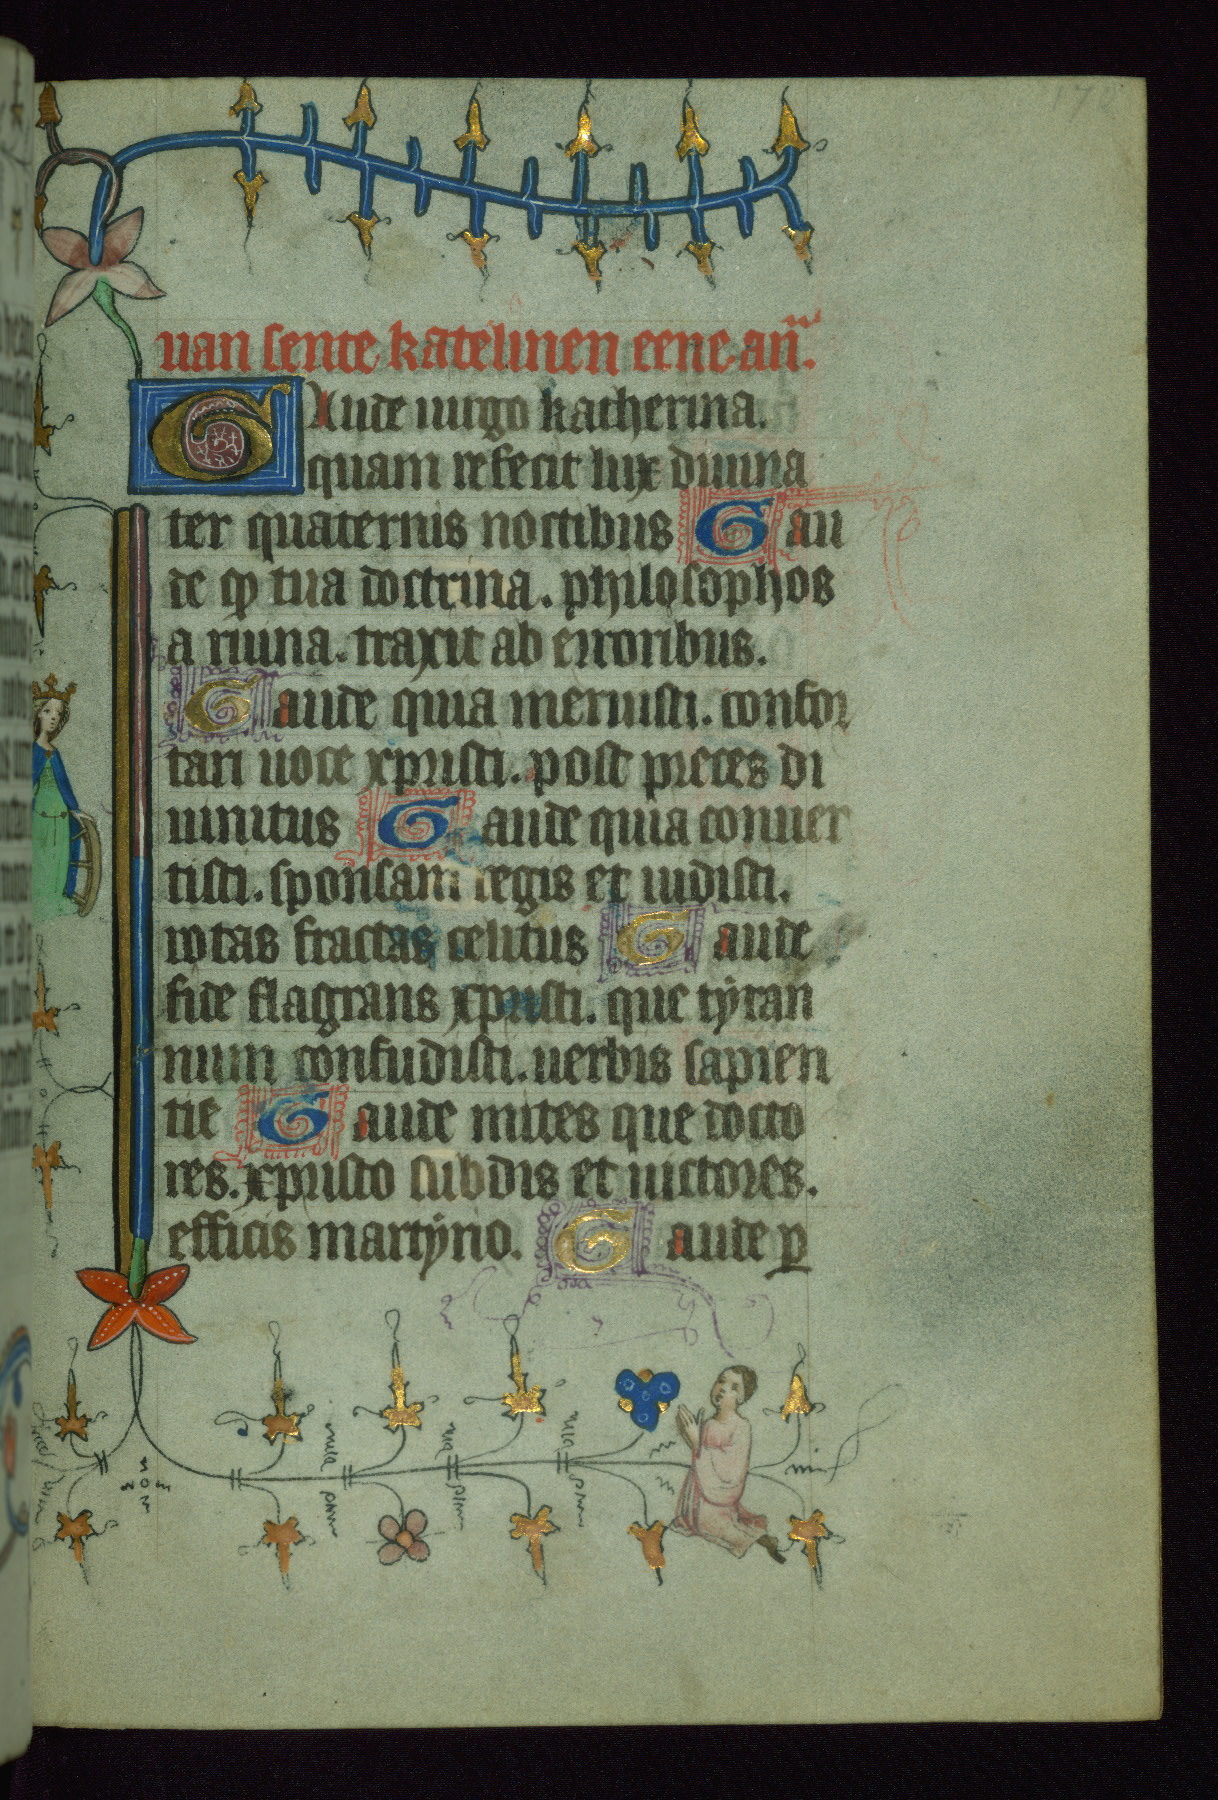 uan sente katelinen eene an̄.
GAude uirgo katherina.
quam refecit lux diuina
ter quaternis noctibus Gau
de ꝙ tua doctrina. philosophos
a ruina. traxit ab erroribus.
Gaude quia meruisti. confor
tari uoce xpristi. post preces di
uinitus Gaude quia conuer
tisti. sponsam regis et uidisti.
rotas fractas celitus Gaude
fide flagrans xpristi. que tẏran
num confudisti. uerbis sapien
tie Gaude mites que docto
res. xpristo subdis et uictores.
efficis martẏrio. Gaude ꝑ